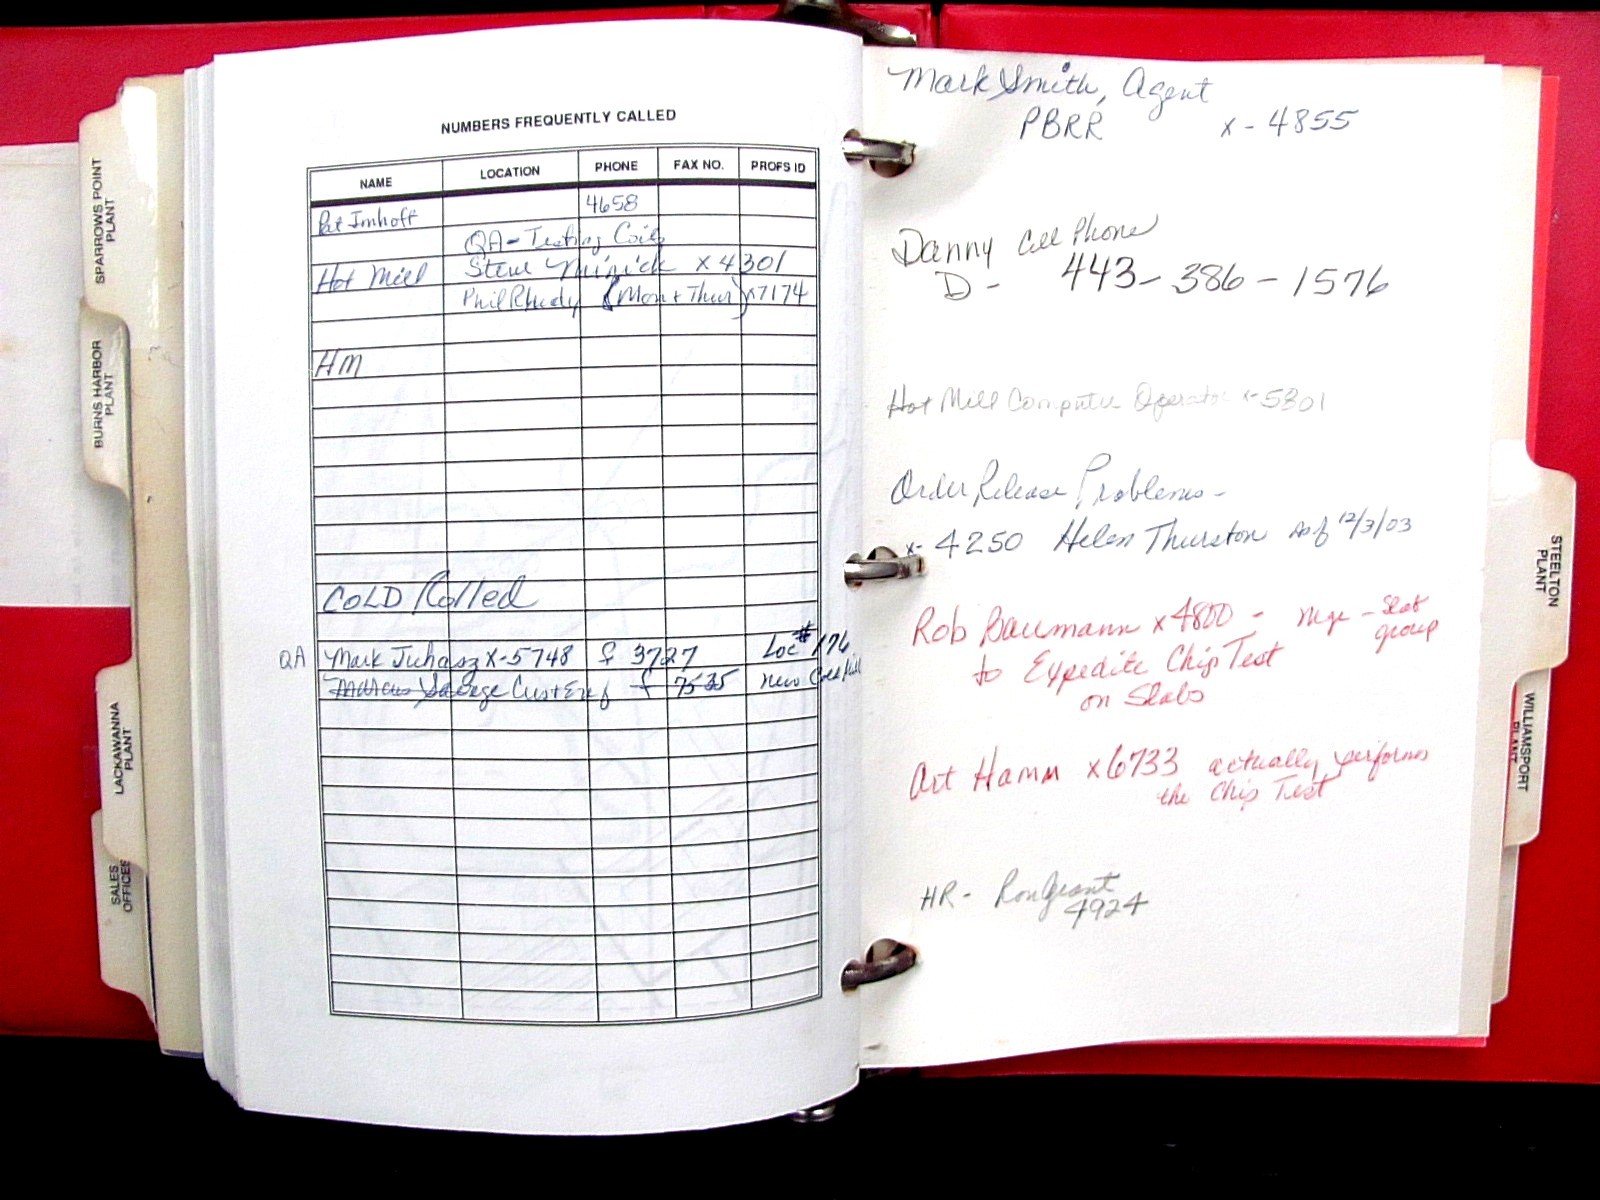 SPARROWS POINT
PLANT
BURNS HARBOR
PLANT
LACKAWANNA
PLANT
SALES
OFFICES
NUMBERS FREQUENTLY CALLED
NAME LOCATION PHONE FAX NO. PROFS ID
Pat Imhoff 4658
QA - Testing Coils
Hot Mill Steve Minick x4301
Phil Rhudy (Mon + Thur) x7174
HM
COLD Rolled
QA Mark Juhasz X-5748 f 3727 Loc # 176
Marcus Savage Cust f 7535 new Cold Mill
Mark Smith, Agent
PBRR x-4855
Danny Cell Phone
D - 443-386-1576
Hot Mill Computer Operator x-5301
Order Release Problems -
x- 4250 Helen Thurston as of 12/3/03
Rob Baumann x4800 - mgr - Slab
group
to Expedite Chip Test
on Slabs
Art Hamm x6733 actually performs
the Chip Test
HR - Ron Grant
4924
STEELTON
PLANT
WILLIAMSPORT
PLANT